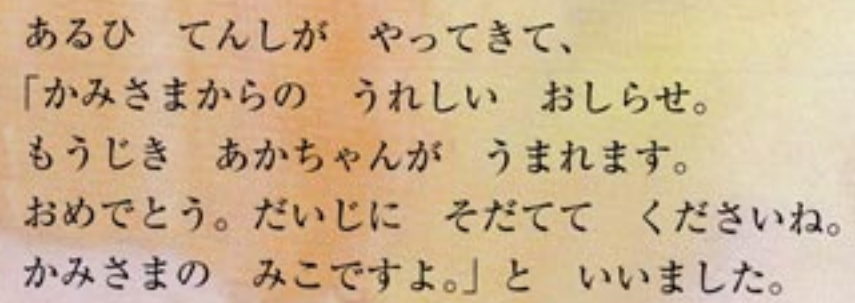 あるひ　てんしが　やってきて、
「かみさまからの　うれしい　おしらせ。
もうじき　あかちゃんが　うまれます。
おめでとう。だいじに　そだてて　くださいね。
かみさまの　みこですよ。」と　いいました。